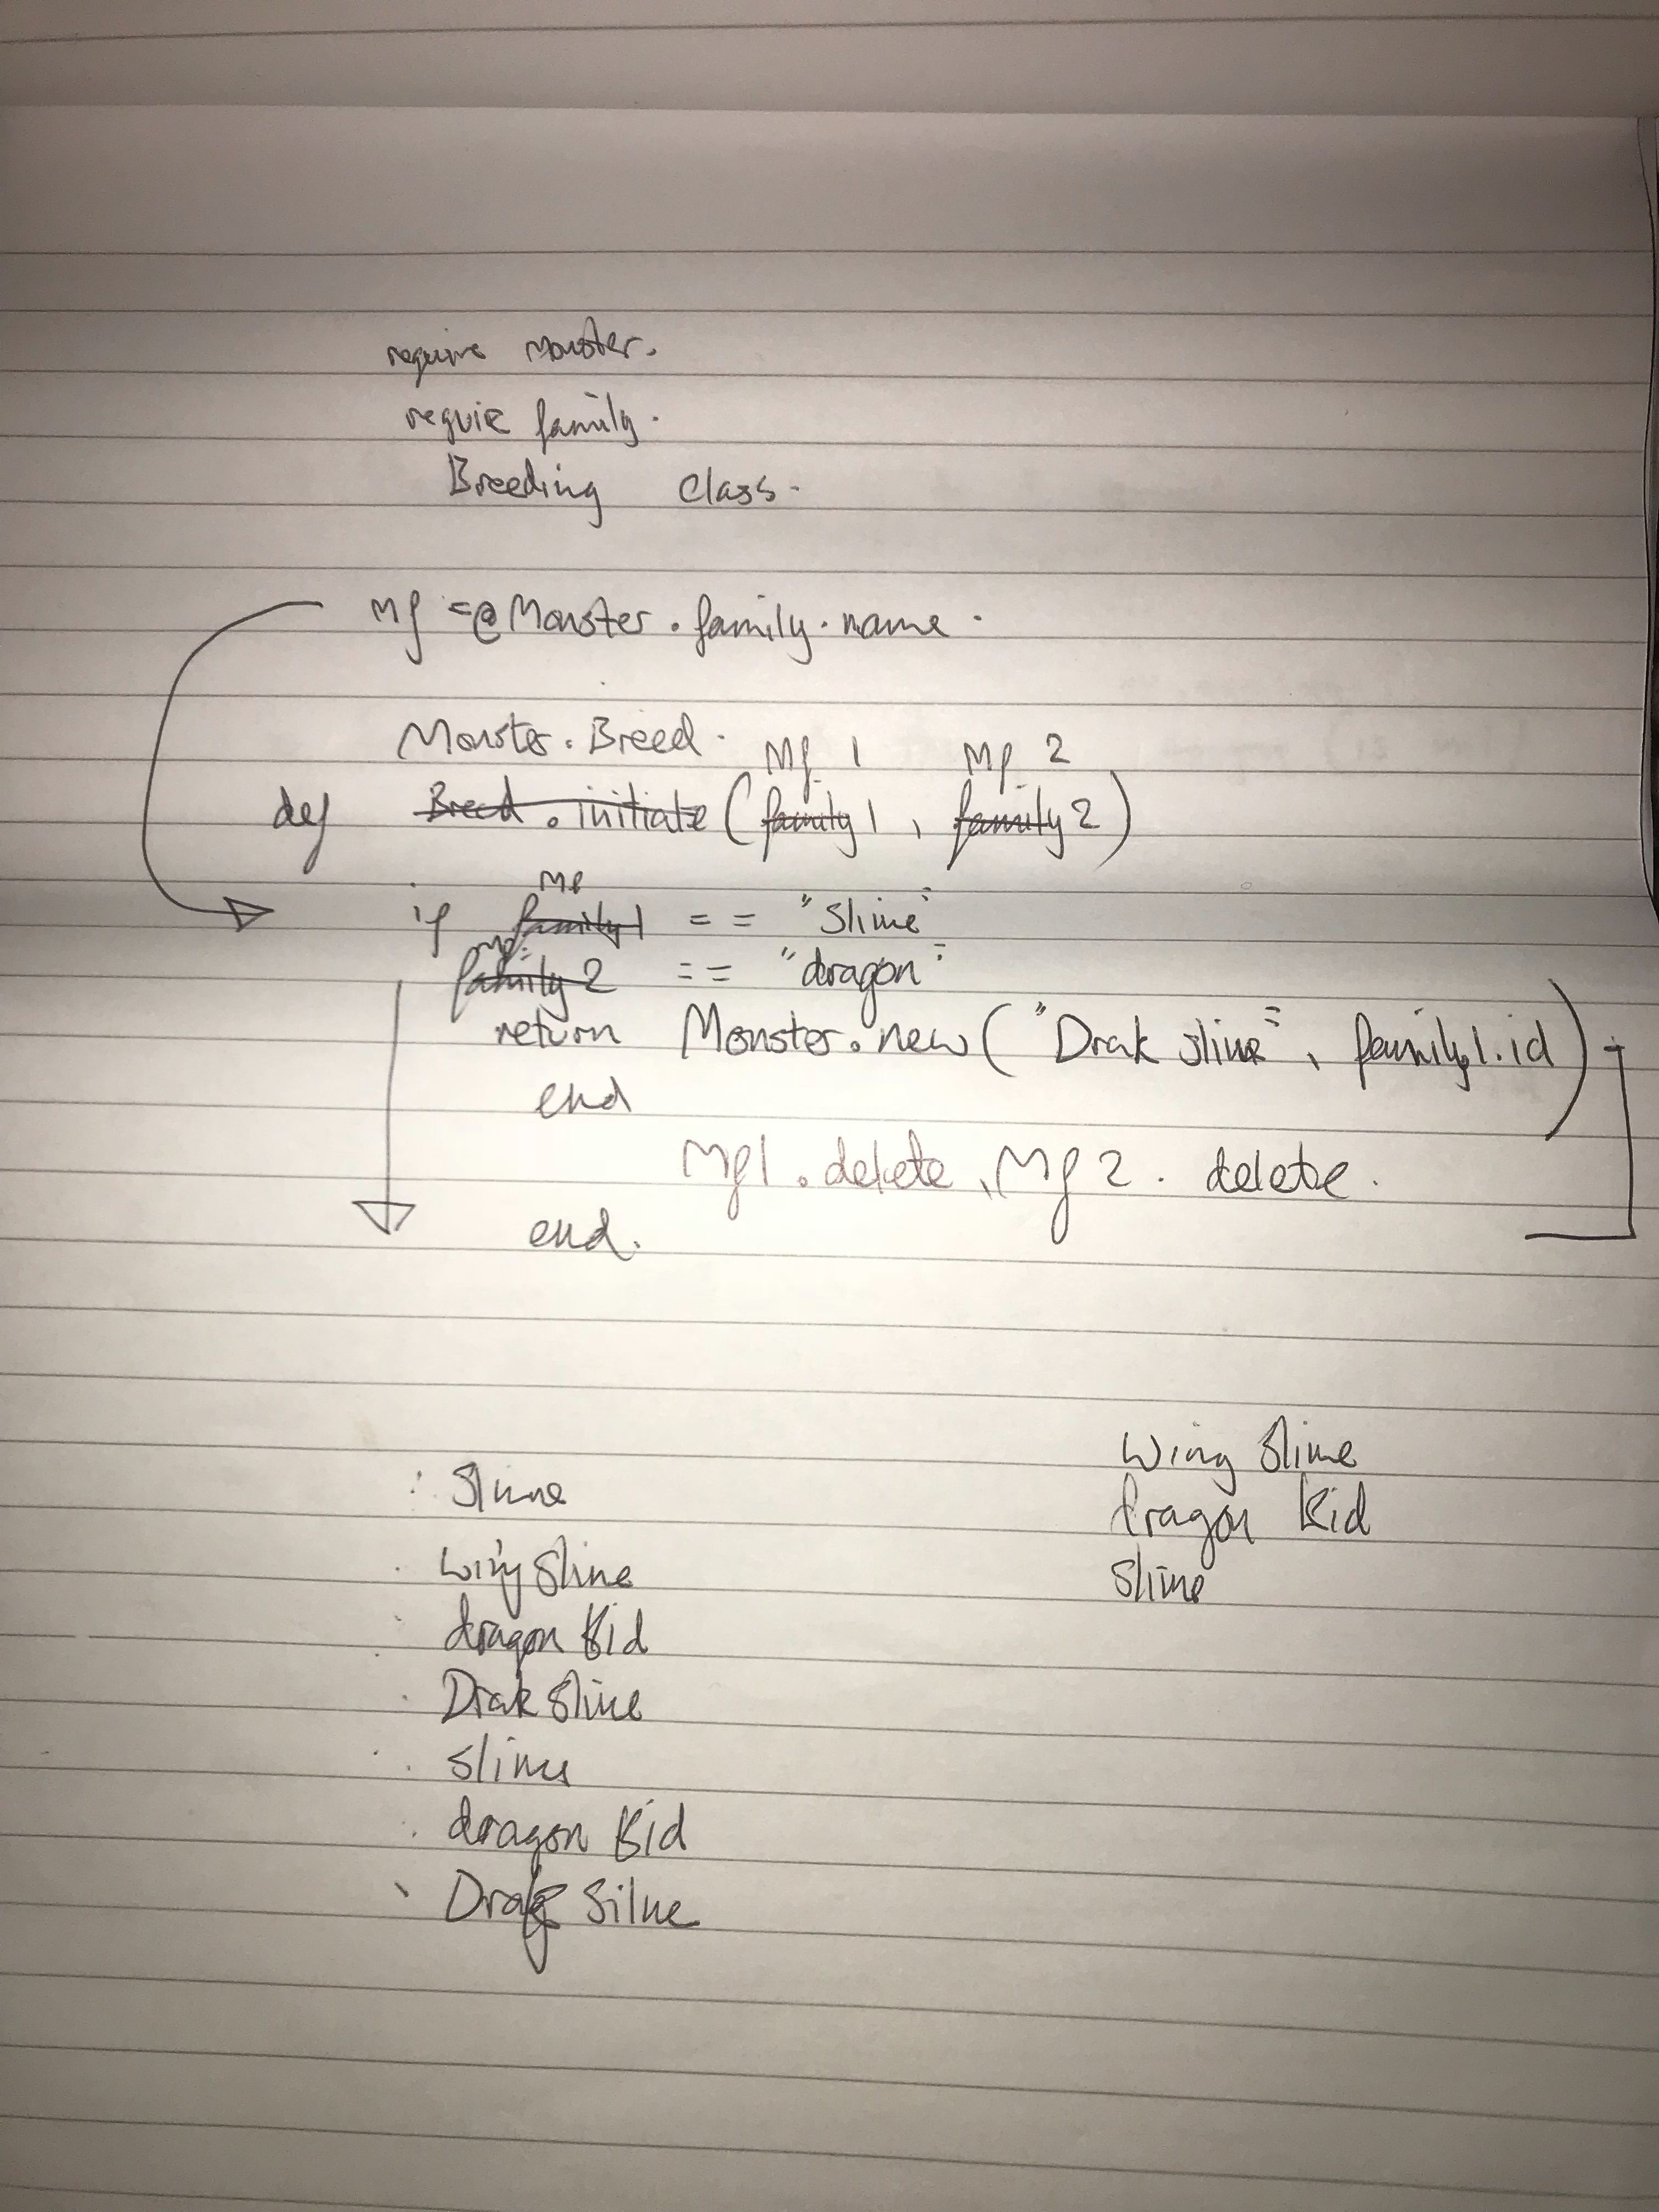 require Monster.
require family.
Breeding Class.
Mf =@Monster.family.name.
Monster.Breed.
Mf 1 Mf 2
def Breed.initiate (family 1, family 2)
Mf
if family 1 == "Slime"
Mf
family 2 == "dragon"
return Monster.new ("Drak slime", family1.id)
end
Mf1.delete, Mf2. delete.
end.
Wing Slime
dragon Kid
Slime
Slime
wing slime
dragon Kid
Drak slime
slime
dragon Kid
Drak Silne